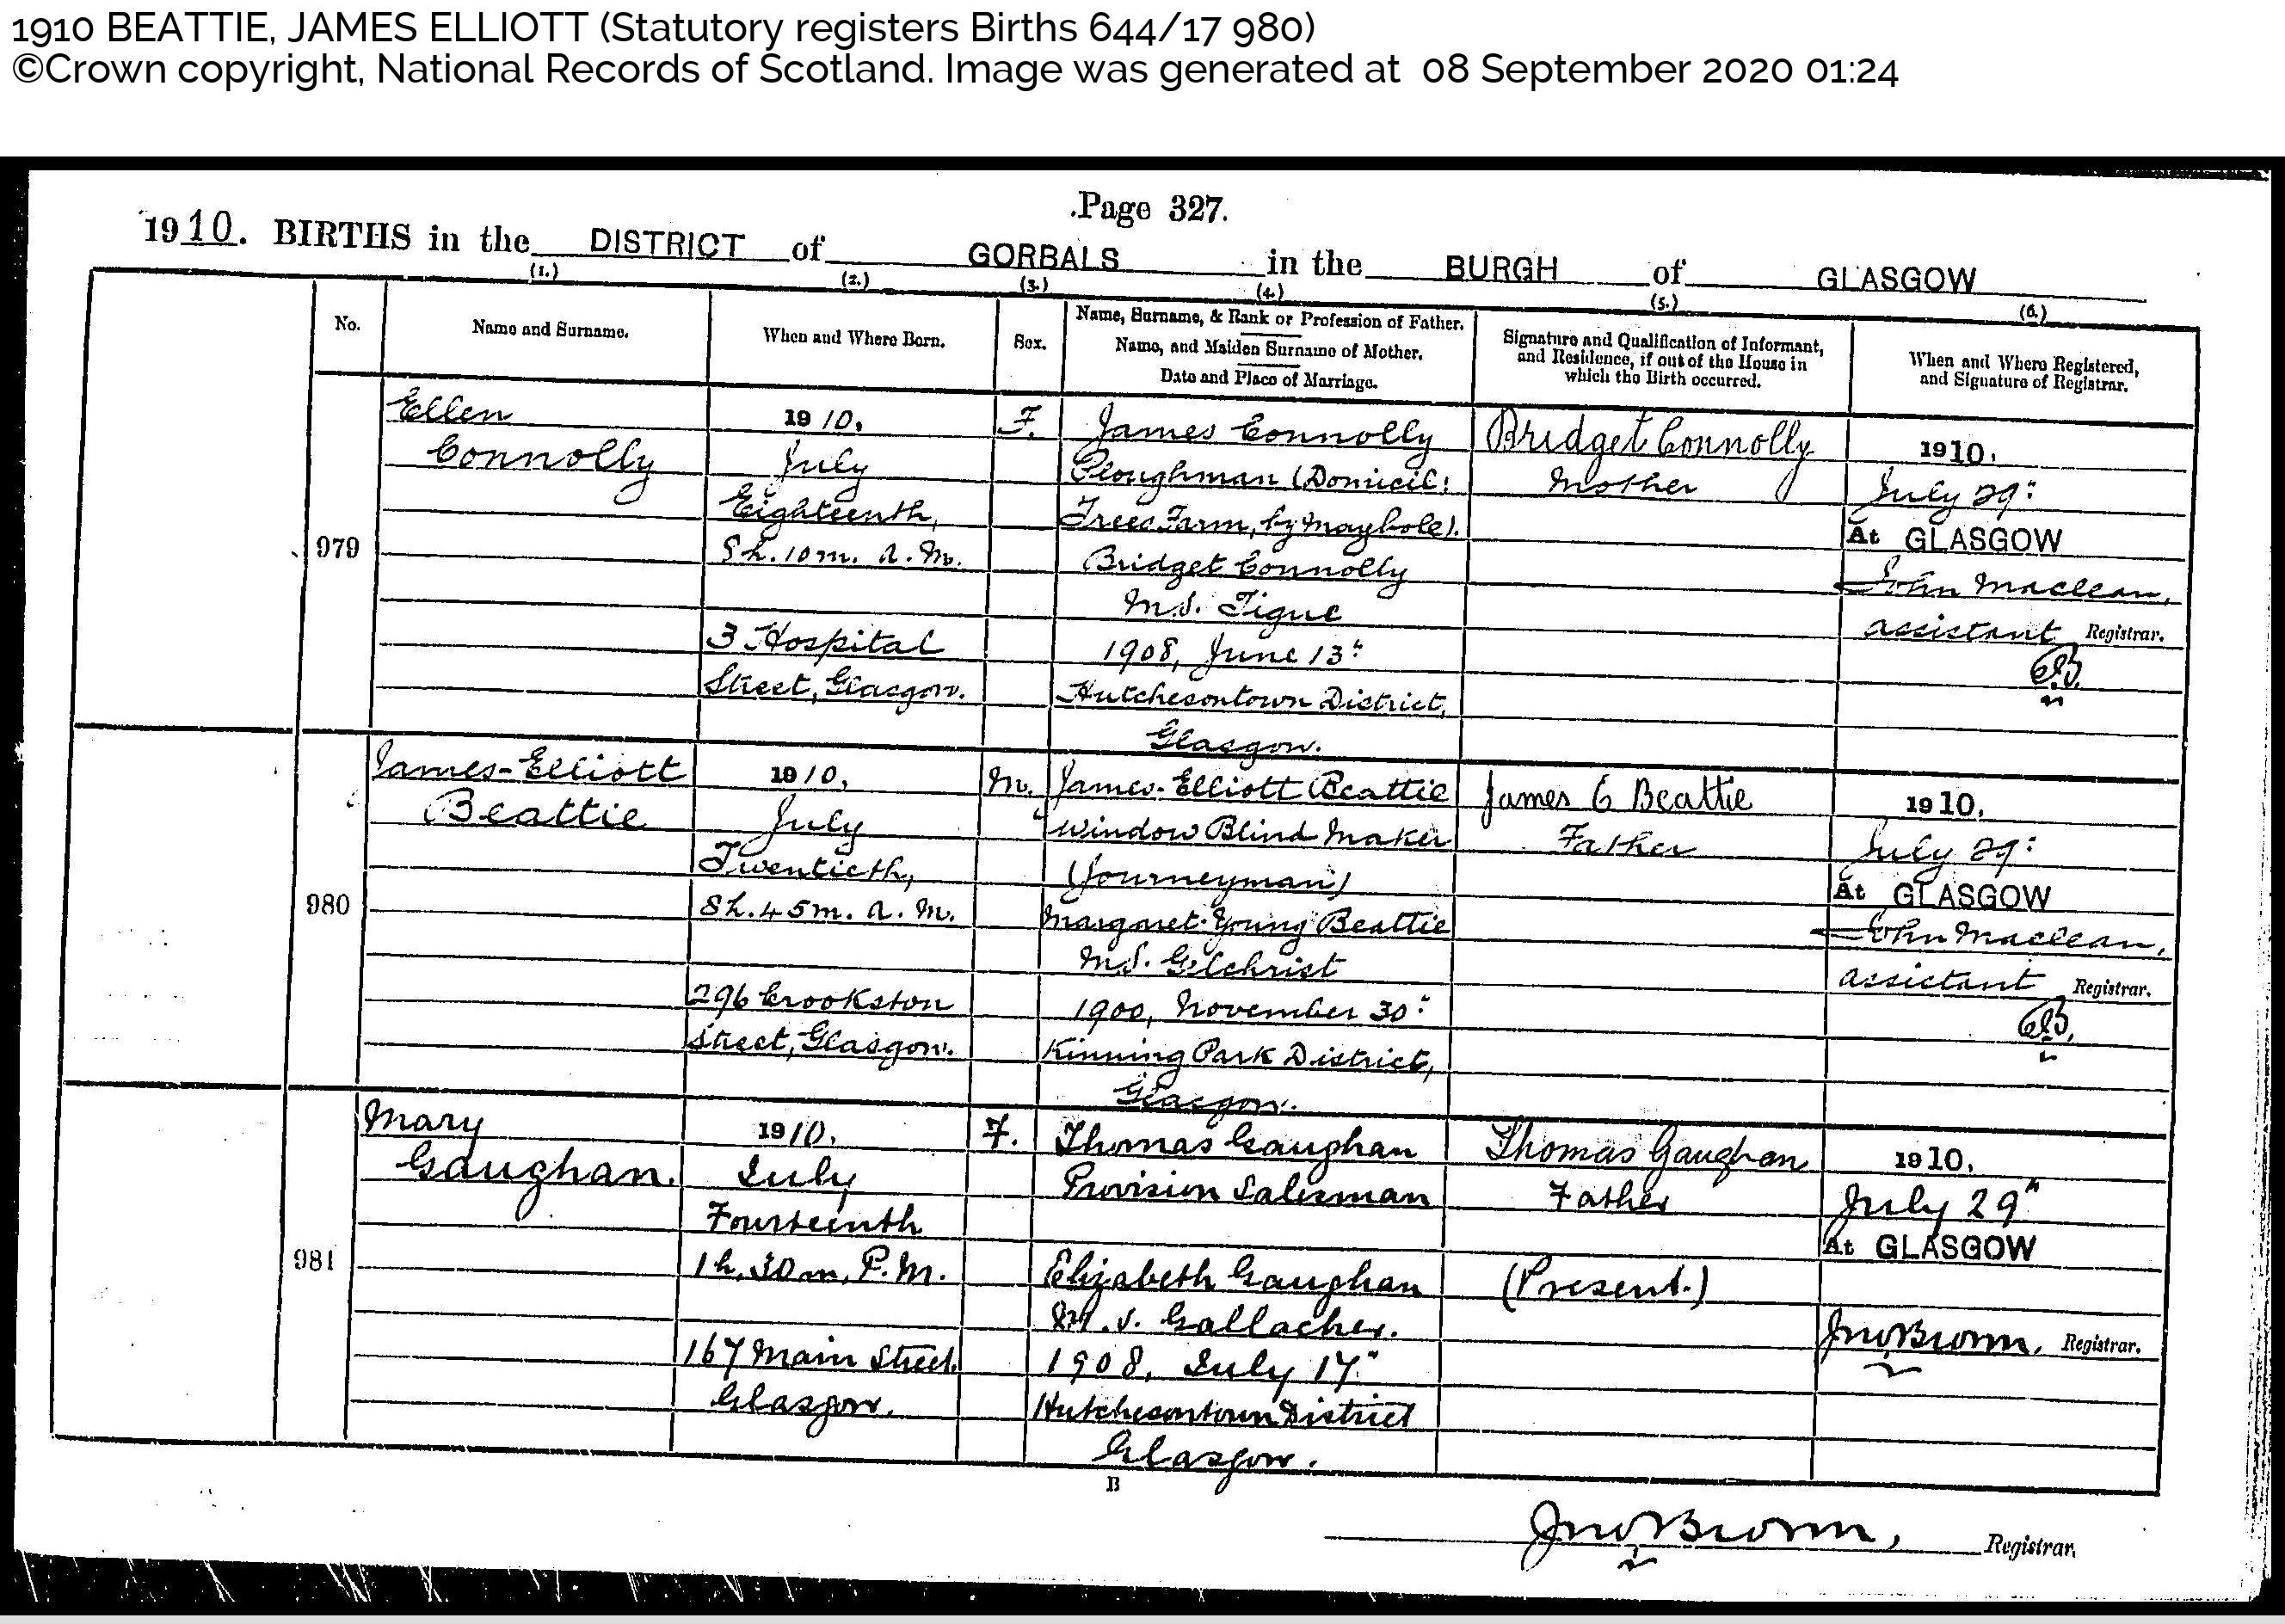 1910 BEATTIE, JAMES ELLIOTT (Statutory registers Births 644/17 980)
©Crown copyright, National Records of Scotland. Image was generated at 08 September 2020 01:24
Page 327.
1910. BIRTHS in the DISTRICT of GORBALS in the BURGH of GLASGOW
(1.) (2.) (3.) (4.) (5.) (6.)
No.
Name and Surname.
When and Where Born.
Sex.
Name, Surname, & Rank or Profession of Father.
Name, and Maiden Surname of Mother.
Date and Place of Marriage.
Signature and Qualification of Informant,
and Residence, if out of the House in
which the Birth occurred.
When and Where Registered,
and Signature of Registrar.
979
Ellen
Connolly
1910,
July
Eighteenth,
8h. 10m. A.M.
3 Hospital
Street, Glasgow.
F.
James Connolly
Ploughman (Domicil:
Trees Farm, by Maybole).
Bridget Connolly
M.S. Tigue
1908, June 13"
Hutchesontown District,
Glasgow.
Bridget Connolly
Mother
1910.
July 29"
At GLASGOW
John Maclean,
assistant Registrar.
980
James-Elliott
Beattie
1910,
July
Twentieth,
8h. 45m. A.M.
296 Crookston
Street, Glasgow.
M.
James-Elliott Beattie
Window Blind Maker
(Journeyman)
Margaret-Young Beattie
M.S. Gilchrist
1900, November 30"
Kinning Park District,
Glasgow.
James E Beattie
Father
1910.
July 29"
At GLASGOW
John Maclean,
assistant Registrar.
981
Mary
Gaughan.
1910.
July
Fourteenth
1h. 30m. P.M.
167 Main Street
Glasgow.
F.
Thomas Gaughan
Provision Salesman
Elizabeth Gaughan
M.S. Gallacher.
1908, July 17"
Hutchesontown District
Glasgow.
Thomas Gaughan
Father
(Present.)
1910.
July 29"
At GLASGOW
Jno Brown. Registrar.
B
Jno Brown, Registrar.